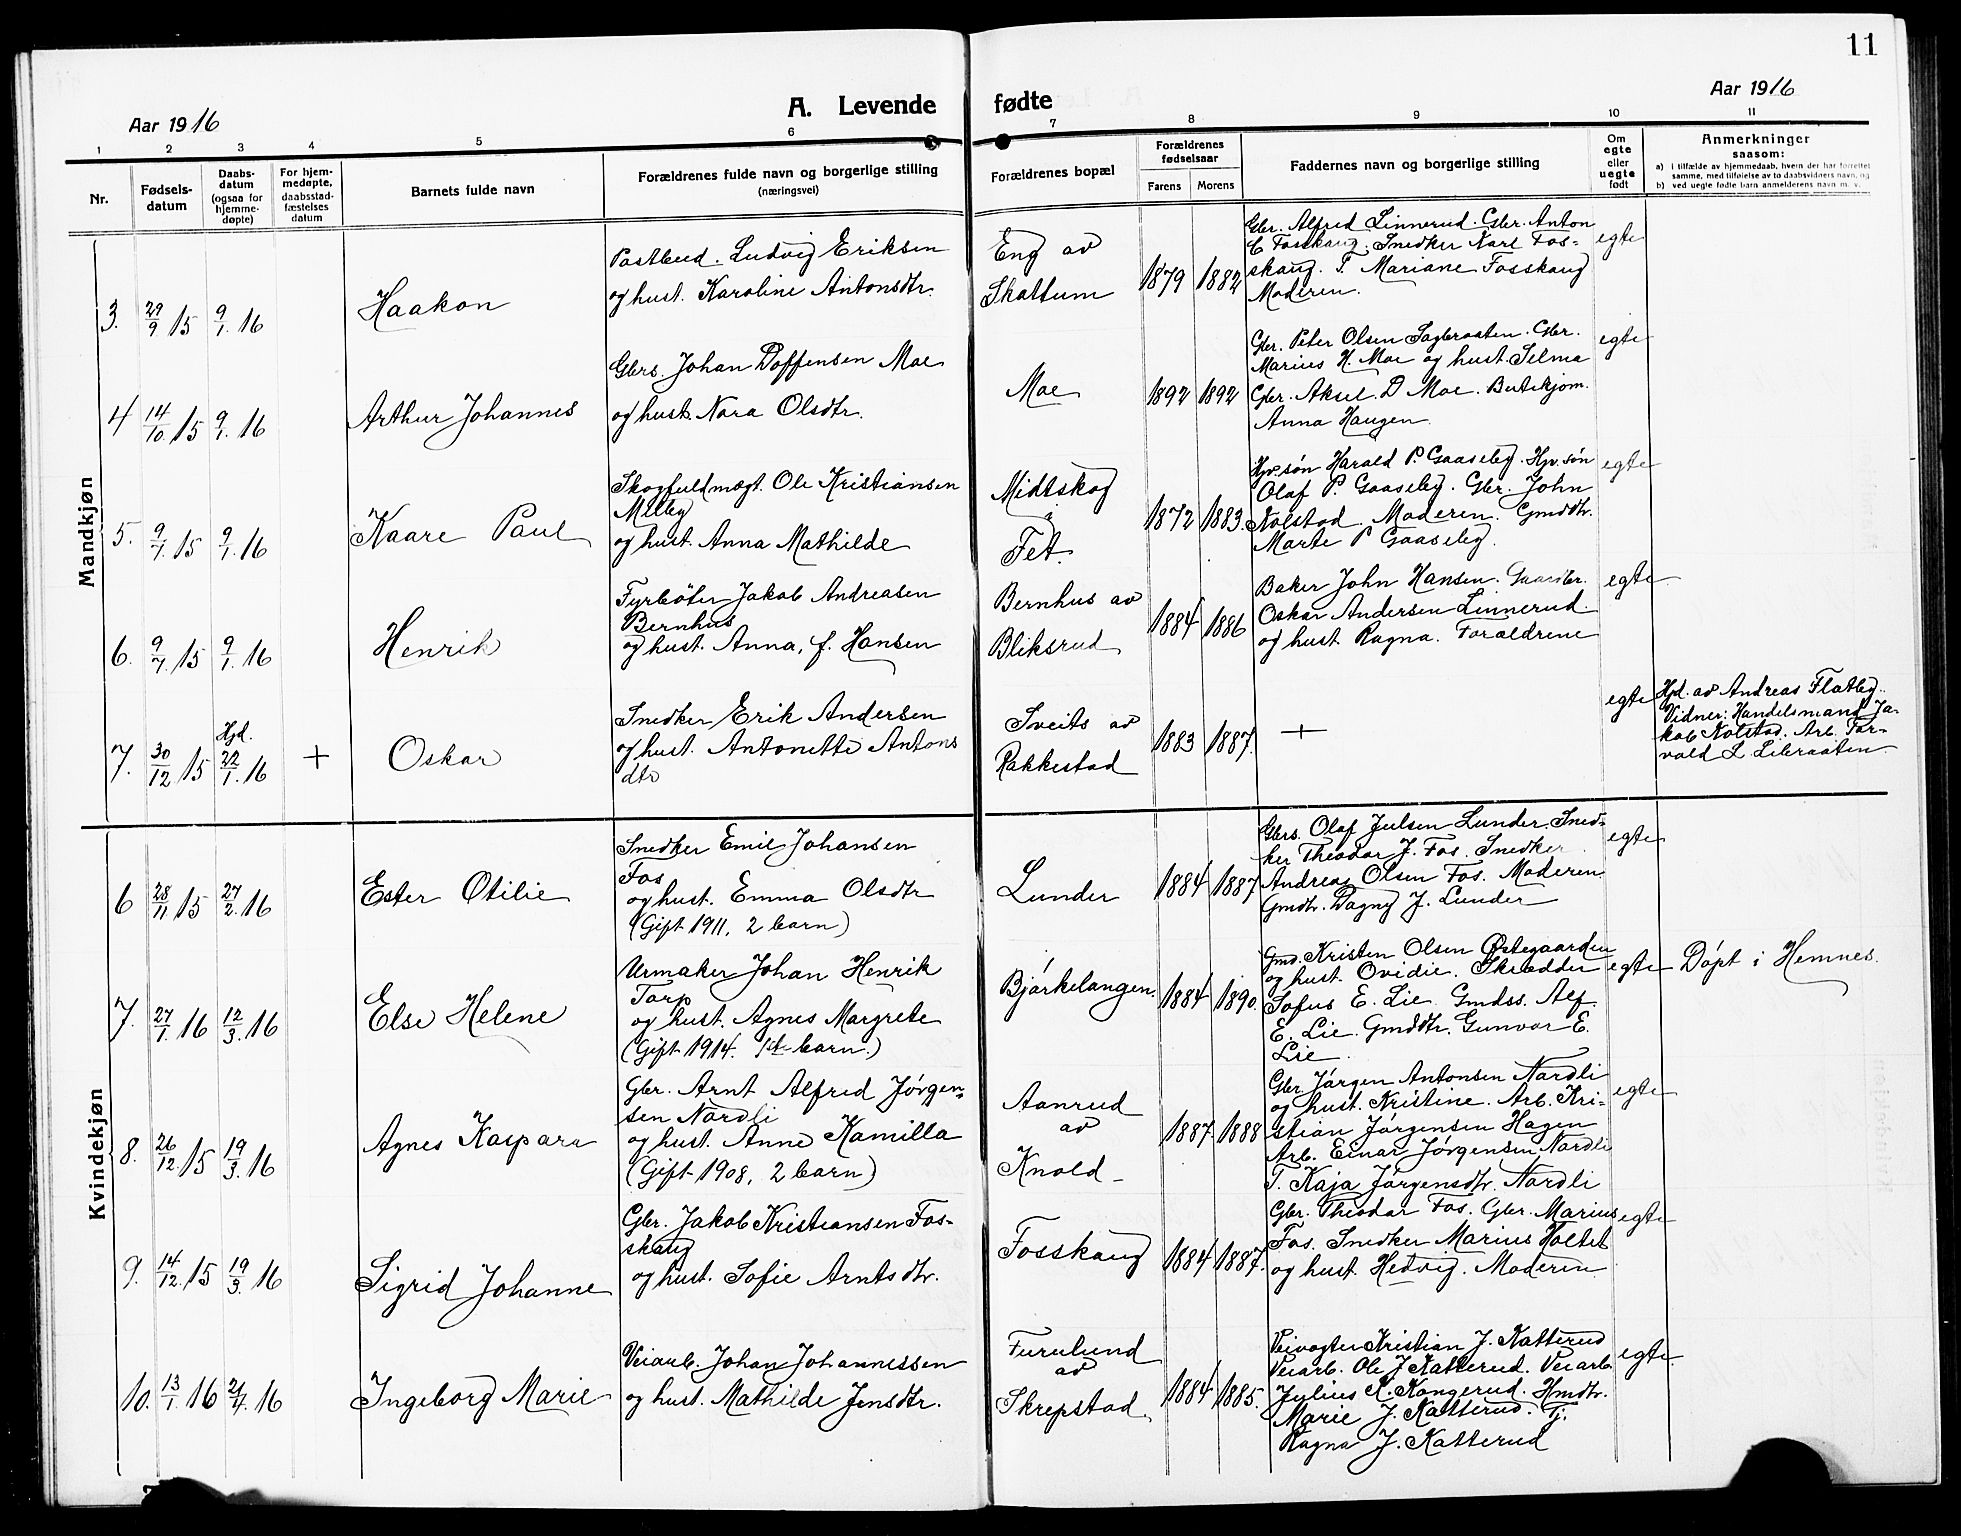 11
Aar 1916
A. Levende fødte
Aar 1916
1 2 3 4 5 6 7 8 9 10 11
Nr.
Fødsels-
datum
Daabs-
datum
(ogsaa for
hjemme-
døpte)
For hjem-
medøpte,
daabsstad-
fæstelses
datum
Barnets fulde navn
Forældrenes fulde navn og borgerlige stilling
(næringsvei)
Forældrenes bopæl
Forældrenes
fødselsaar
Farens Morens
Faddernes navn og borgerlige stilling
Om
egte
eller
uegte
født
Anmerkninger
saasom:
a) i tilfælde av hjemmedaab, hvem der har forrettet
samme, med tilføielse av to daabsvidners navn, og
b) ved uegte fødte barn anmelderens navn m. v.
Mandkjøn
3. 29/9 15 9/1. 16
Haakon
Postbud. Ludvig Eriksen
og hust. Karoline Antonsdtr.
Eng av
Skattum
1879 1882
Gbr. Alfred Linnerud. Gbr. Anton
C Fosskaug. Snedker Karl Fos-
skaug. T. Mariane Fosskaug
Moderen.
egte
4 14/10. 15 9/1. 16
Arthur Johannes
Gbrs. Johan Doffensen Moe
og hust. Nora Olsdtr.
Moe
1892 1892
Gbr. Peter Olsen Sagbraaten. Gbr.
Marius H. Moe og hust. Selma
Gbr. Aksel D Moe. Butikjom.
Anna Haugen.
egte
5. 9/7. 15 9/1. 16
Kaare Paul
Skogfuldmægt. Ole Kristiansen
Melby
og hust. Anna Mathilde
Midtskog
i
Fet.
1872 1883.
Hpv. søn Harald P. Gaaseby. Hpv. søn
Olaf P. Gaaseby. Gbr. John
Nolstad Moderen. Gmddtr.
Marte P Gaaseby.
egte
6. 9/7. 15 9/1. 16
Henrik
Fyrbøter Jakob Andreasen
Bernhus
og hust. Anna, f. Hansen
Bernhus av
Bliksrud
1884 1886
Baker John Hansen. Gaardbr.
Oskar Andersen Linnerud.
og hust. Ragna. Forældrene
egte
7. 30/12 15 Hjd. 22/1. 16 +
Oskar
Snedker Erik Andersen
og hust. Antonette Antons
dtr
Sveits av
Rakkestad
1883 1887.
+
egte
Hjd. av Andreas Flatby.
Vidner: Handelsmand Ja-
kob Nolstad. Arb. Tor-
vald L. Liberaaten
Kvindekjøn
6 28/11 15 27/2. 16
Ester Otilie
Snedker Emil Johansen
Fos
og hust. Emma Olsdtr
(Gift 1911, 2 barn)
Lunder
1884 1887
Gbrs. Olaf Julsen Lunder. Sned-
ker Theodor J. Fos. Snedker
Andreas Olsen Fos. Moderen.
Gmdtr. Dagny J. Lunder
egte
7. 27/1 16 12/3. 16
Else Helene
Urmaker Johan Henrik
Torp
og hust. Agnes Margrete
(Gift 1914. 1ste barn.)
Bjørkelangen.
1884 1890.
Gmd. Kristen Olsen Østegaarden
og hust. Ovidie. Skrædder
Sofus E. Lie. Gmdss. Alf.
E. Lie. Gmddtr. Gunvor E.
Lie.
egte
Døpt i Hemnes.
8. 26/12. 15 19/3. 16
Agnes Kaspara
Gbr. Arnt Alfred Jørgen-
sen Nordli
og hust. Anne Kamilla
(Gift 1908, 2 barn)
Aanrud
av
Knold
1887 1888
Gbr. Jørgen Antonsen Nordli
og hust. Kristine. Arb. Kri-
stian Jørgensen Hagen
Arb. Einar Jørgensen Nordli
T. Kaja Jørgensdtr. Nordli
egte
9. 14/12. 15 19/3. 16
Sigrid Johanne
Gbr. Jakob Kristiansen Fos-
skaug
og hust. Sofie Arntsdtr.
Fosskaug
1884 1887.
Gbr. Theodor Fos. Gbr. Marius
Fos. Snedker Marius Holtet
og hust. Hedvig. Moderen
egte
10. 13/1. 16 24/4. 16
Ingeborg Marie
Veiarb. Johan Johannessen
og hust. Mathilde Jensdtr.
Furulund
av
Skrepstad
1884 1885.
Veivogter Kristian J. Katterud
Veiarb. Ole J Katterud. Veiarb.
Julius K. Kongerud. Hmdtr.
Marie J. Katterud. Tj.
Ragna J. Katterud
egte